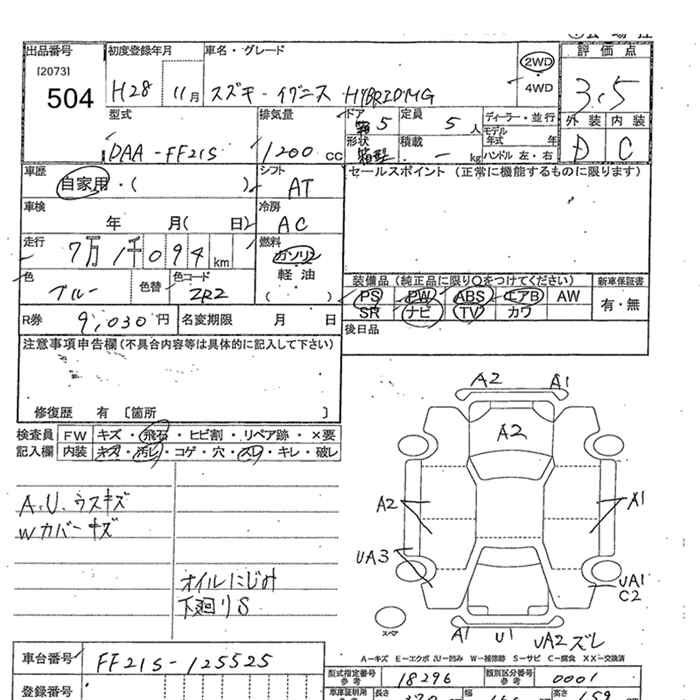 出品番号
[2073]
504
初度登録年月
H28 11月
車名・グレード
スズキ・イグニス HYBRID MG
2WD
4WD
評価点
3.5
外装 内装
D C
型式
DAA-FF21S
排気量
1200 cc
ドア 5
形状 箱型
定員 5 人
積載 - kg
ディーラー・並行
モデル年式 年
ハンドル 左・右
車歴
自家用・( )
シフト
AT
車検
年 月( 日)
冷房
AC
走行
7万1千094 km
燃料
ガソリン
軽油
( )
色
ブルー
色替
色コード
ZR2
R券 9,030円
名変期限 月 日
セールスポイント (正常に機能するものに限ります)
装備品 (純正品に限り○をつけてください)
PS PW ABS エアB AW
SR ナビ TV カワ
新車保証書
有・無
後日品
注意事項申告欄(不具合内容等は具体的に記入して下さい)
修復歴 有 [箇所 ]
検査員記入欄
FW キズ・飛石・ヒビ割・リペア跡・×要
内装 キズ・汚レ・コゲ・穴・スレ・キレ・破レ
A.U.ウスキズ
Wカバーキズ
オイルにじみ
下廻りS
A2 A1
A2
A2 A1
UA3
UA1
C2
スペア
A1 U1 UA2ズレ
A-キズ E-エクボ U-凹み W-補修跡 S-サビ C-腐食 XX-交換済
車台番号 FF21S-125525
登録番号
型式指定番号参考 18296
類別区分番号参考 0001
車庫証明用参考
長さ
幅
高さ